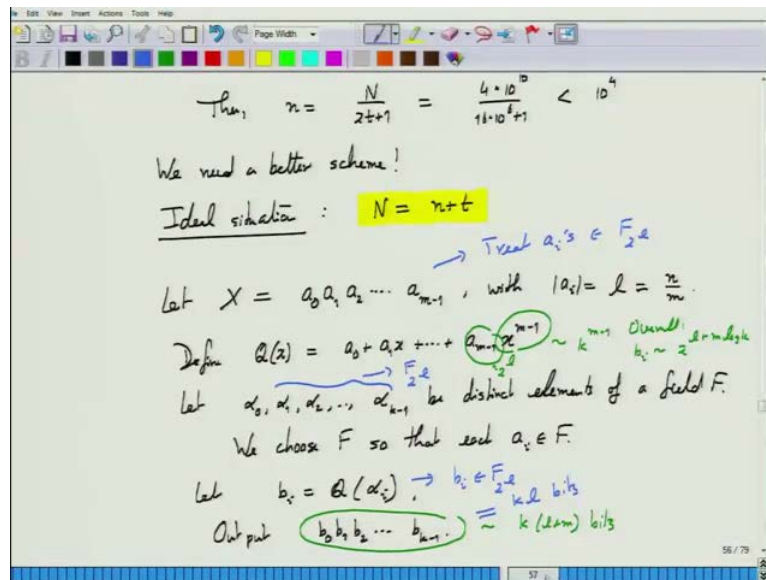 Edit View Insert Actions Tools Help
Page Width
Then, n = N / 2t+1 = 4·10^10 / 16·10^6+1 < 10^4
We need a better scheme!
Ideal situation : N = n+t
→ Treat a_i's ∈ F_2^l
Let X = a_0 a_1 a_2 .... a_{m-1}, with |a_i| = l = n/m.
Define Q(x) = a_0 + a_1 x + .... + a_{m-1} x^{m-1} ~ k^{m-1} Overall: b_i ~ 2^{l+m log k}
2^l
→ F_2^l
Let α_0, α_1, α_2, .., α_{k-1} be distinct elements of a field F.
We choose F so that each a_i ∈ F.
Let b_i = Q(α_i). → b_i ∈ F_2^l
= k l bits
Output b_0 b_1 b_2 ... b_{k-1}. ~ k (l+m) bits
56 / 79
57